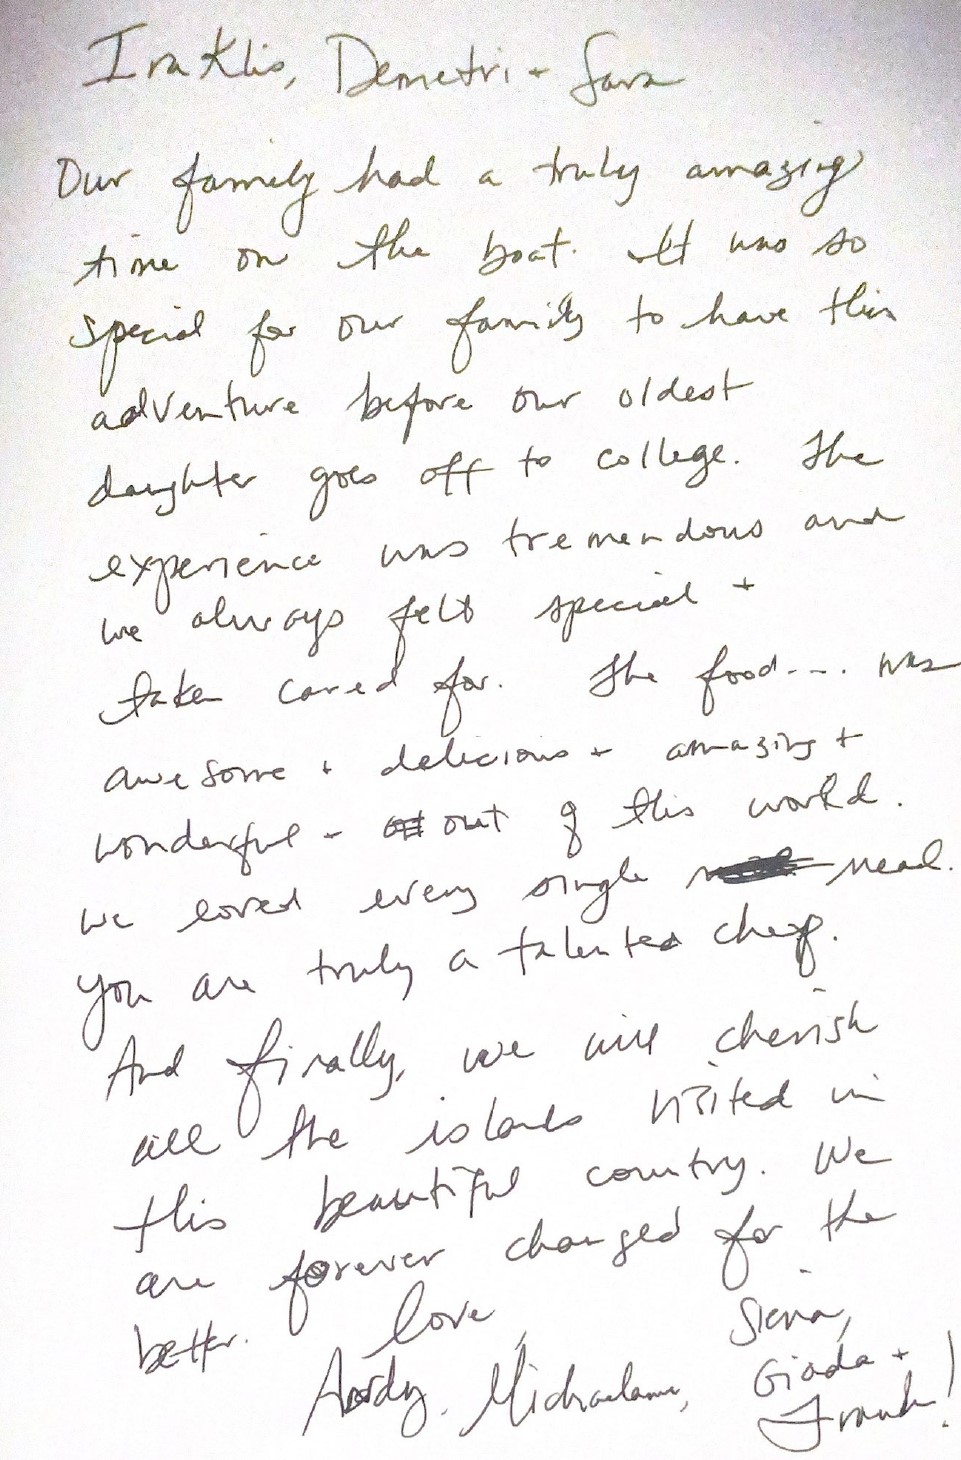 Iraklis, Demetri + Sara
Our family had a truly amazing
time on the boat. It was so
special for our family to have this
adventure before our oldest
daughter goes off to college. The
experience was tremendous and
we always felt special +
taken cared for. The food.... was
awesome + delicious + amazing +
wonderful - out of this world.
We loved every single meal.
You are truly a talented chef.
And finally, we will cherish
all the islands visited in
this beautiful country. We
are forever changed for the
better. Love,
Siena,
Andy, Michaelann, Giada +
Frank!